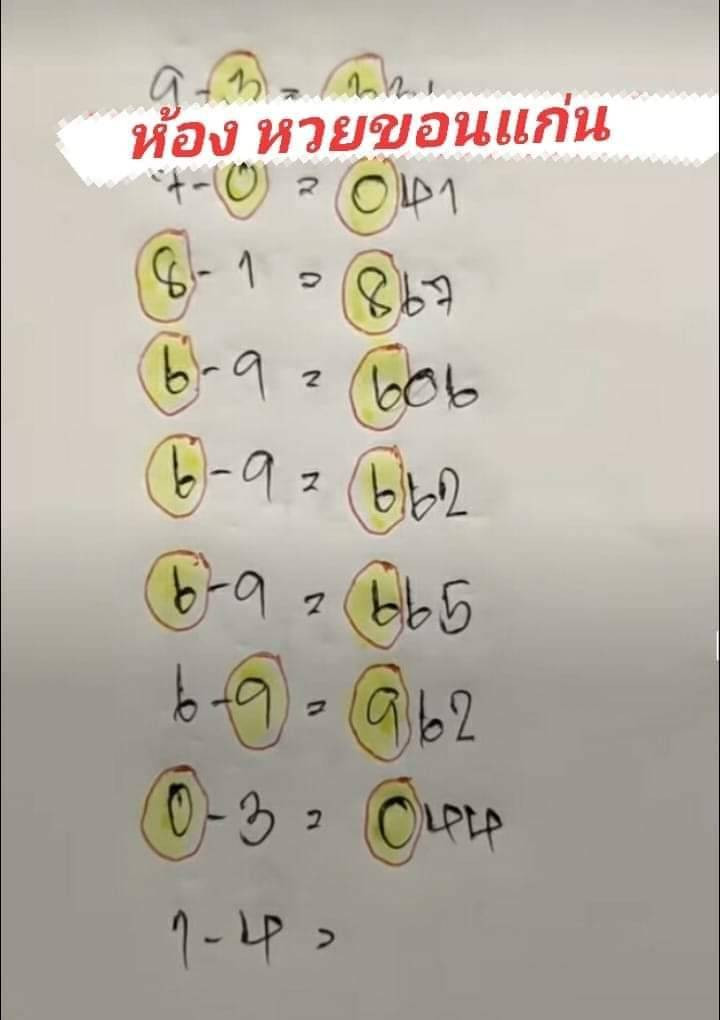 9-3 =
ห้อง หวยขอนแก่น
7-0 = 041
8-1 = 867
6-9 = 606
6-9 = 662
6-9 = 665
6-9 = 962
0-3 = 044
1-4 =